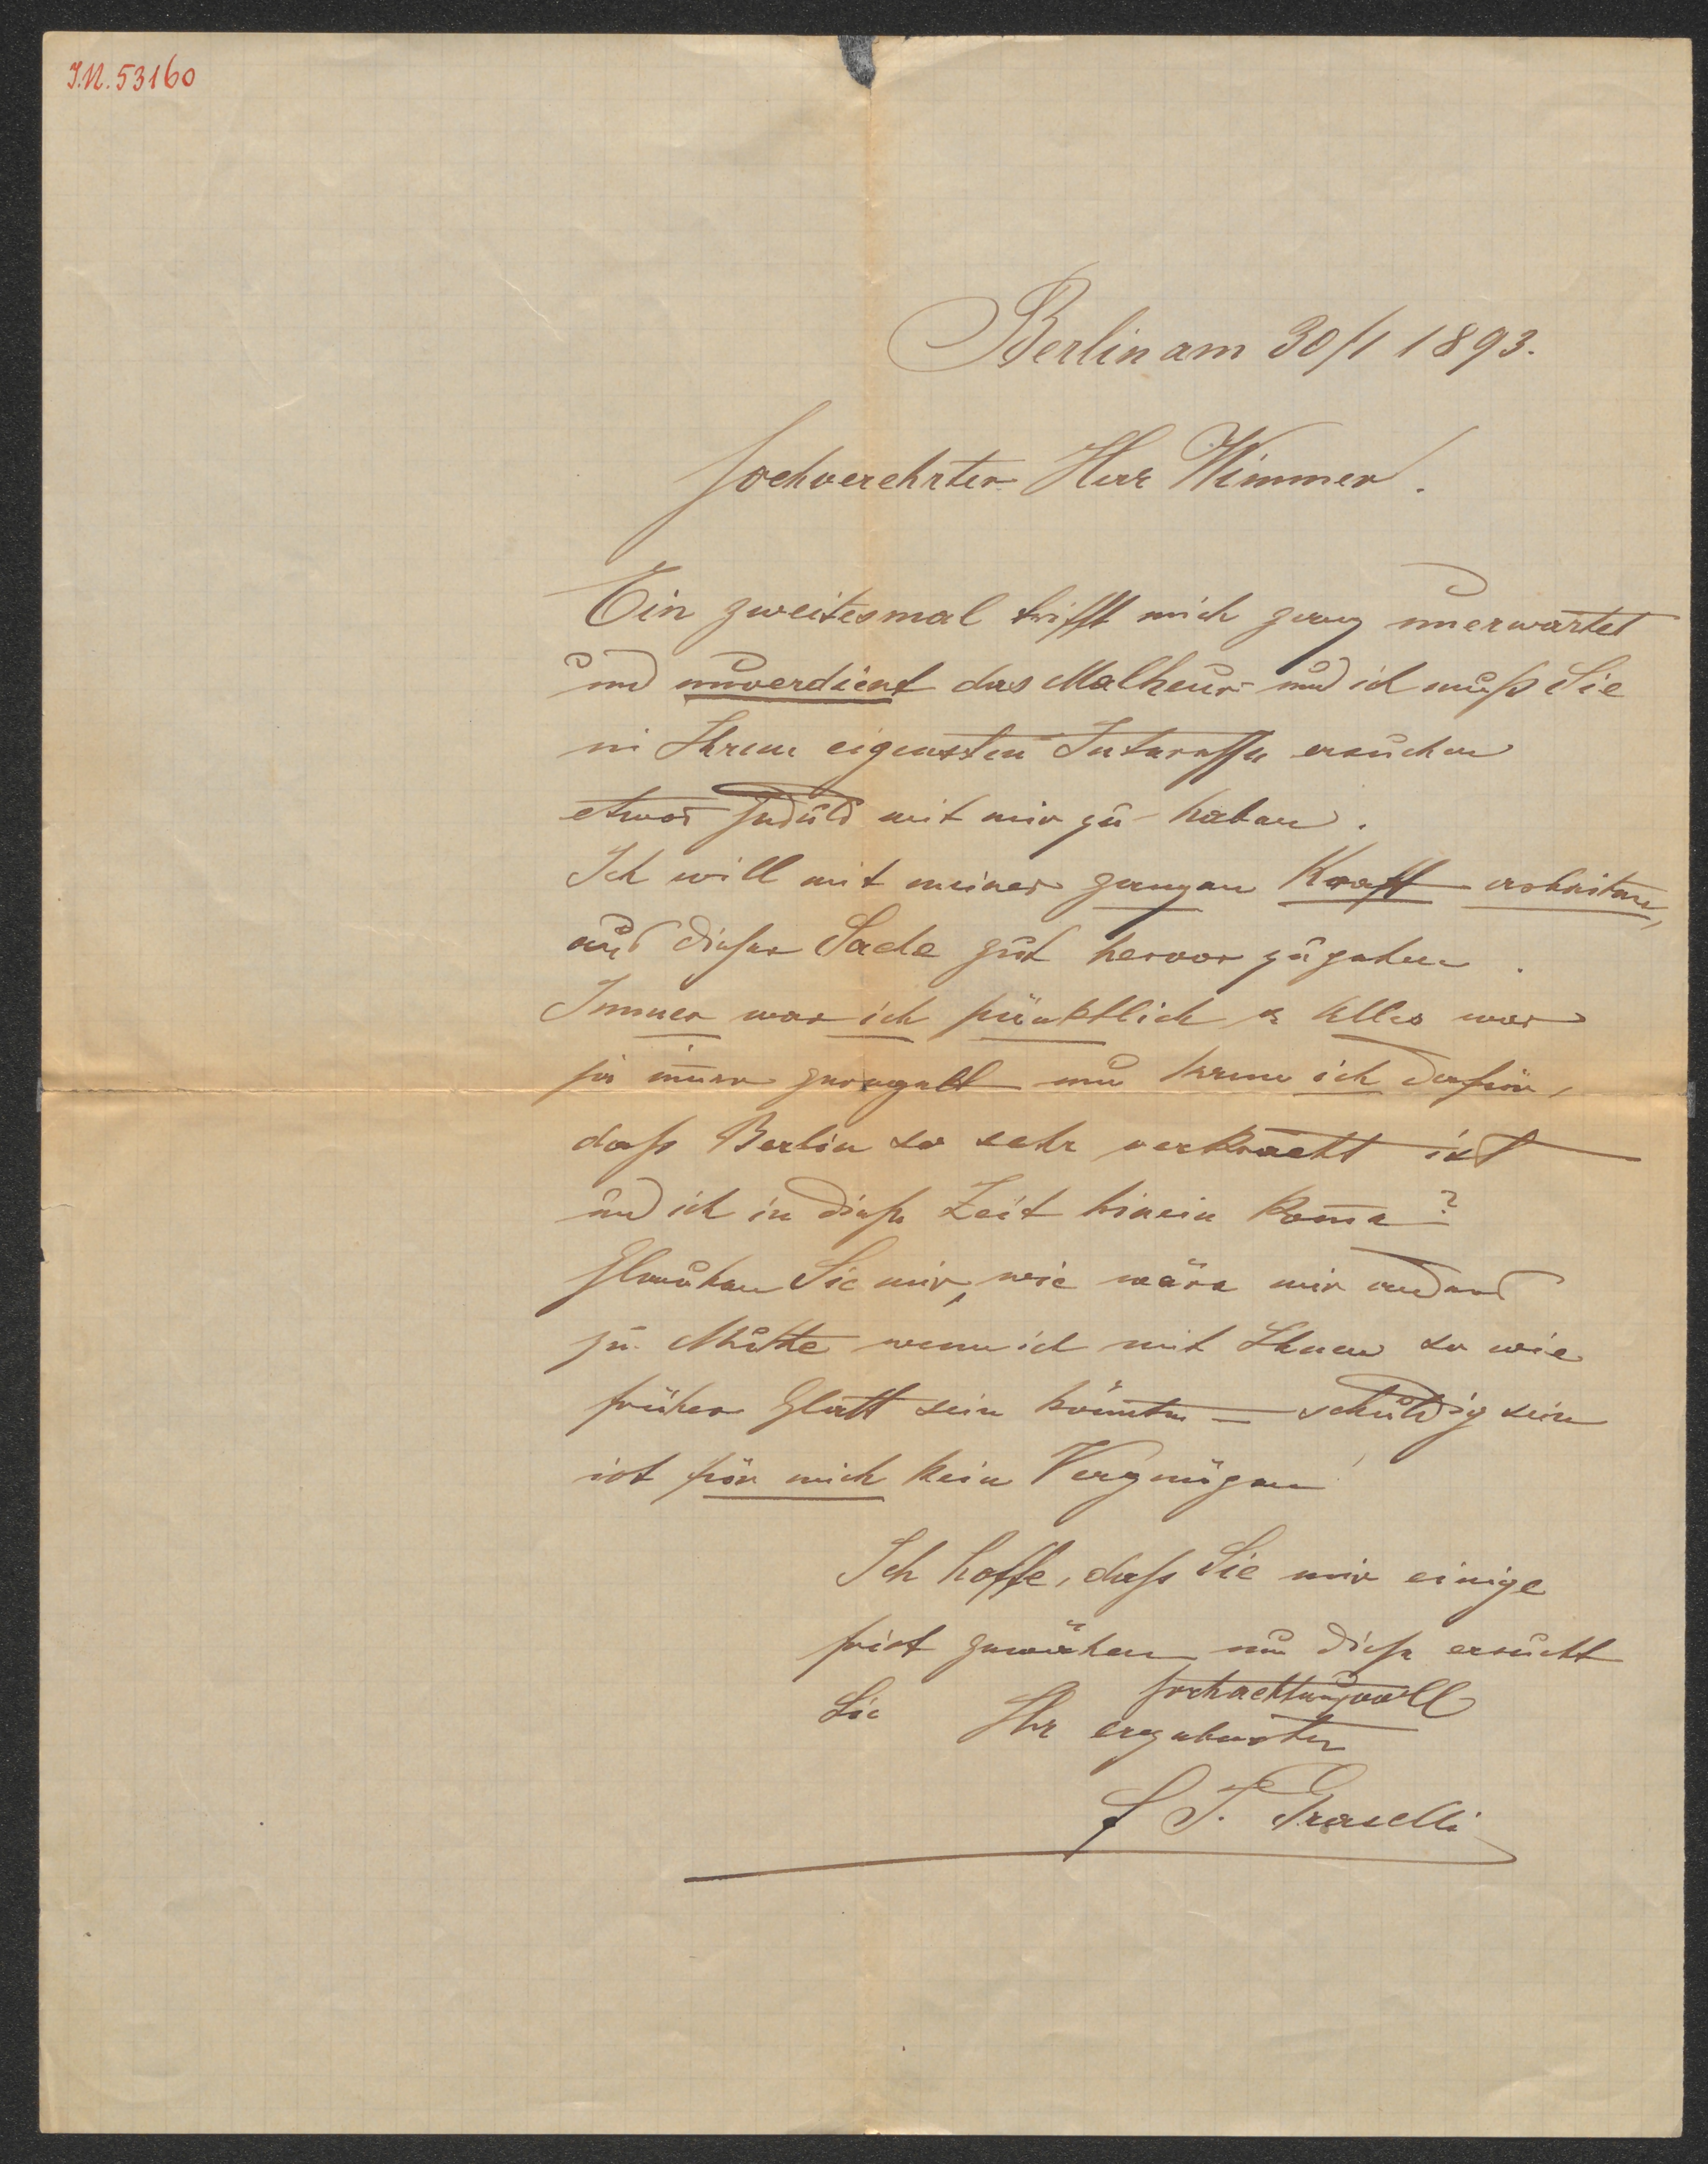 I.N. 53160
Berlin am 30/1 1893.
Hochverehrter Herr Wimmer.
Ein zweitesmal trifft mich ganz unerwartet
und unverdient das Malheur und ich muß Sie
in Ihrem eigensten Interesse ersuchen
etwas Geduld mit mir zu haben.
Ich will mit meiner ganzen Kraft arbeiten,
aus dieser Sache gut hervor zu gehen.
Immer war ich pünktlich & Alles war
ja im̄er geregelt kann ich dafür,
daß Berlin so sehr verkracht ist
und ich in diese Zeit hinein kom̄e?
Glauben Sie mir, wie wäre mir anders
zu Muthe wenn ich mit Ihnen so wie
früher Glatt sein könnte – schuldig sein
ist für mich kein Vergnügen!
Ich hoffe, daß Sie mir einige
Frist gewähren um diese ersucht
Sie Ihr ergebenster
hochachtungsvoll
Graselli